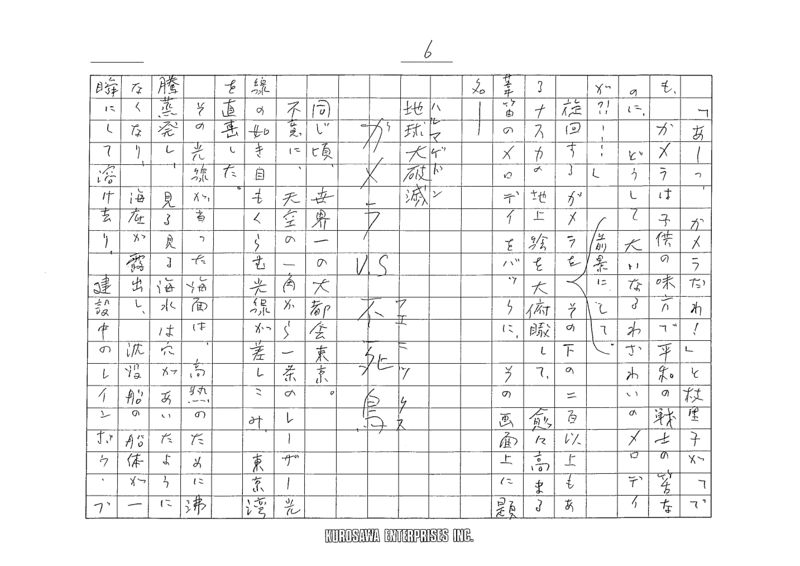 6
「あーっ、ガメラだわ!」と枝里子が「で
も、ガメラは子供の味方で平和の戦士の筈な
のに、どうして大いなるわざわいのメロディ
が?!・・・・」
旋回するガメラを(前景にして)、その下の二百以上もあ
るナスカの地上絵を大俯瞰して、愈々高まる
葦笛のメロディをバックに、その画面上に題
名——
ハルマゲドン
地球大破滅
ガメラVS不死鳥
フェニックス
同じ頃、世界一の大都会東京。
不意に、天空の一角から一条のレーザー光
線の如き目もくらむ光線が差しこみ、東京湾
を直撃した。
その光線が当った海面は、高熱のために沸
騰蒸発し、見る見る海水は穴があいたように
なくなり、海底が露出し、沈没船の船体が一
瞬にして溶け去り、建設中のレインボウ・ブ
KUROSAWA ENTERPRISES INC.